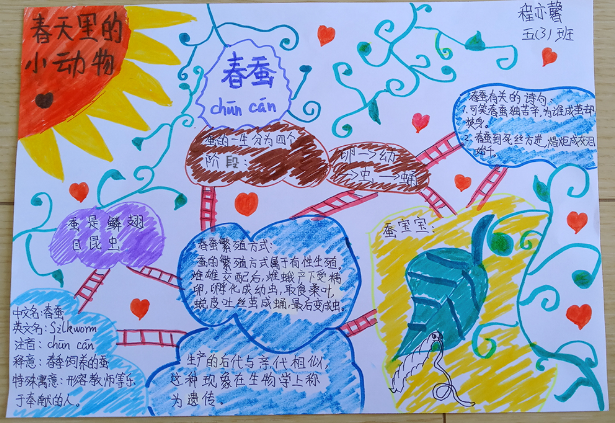 春天里的
小动物
程亦馨
五(3)班
春蚕
chūn cán
蚕的一生分为四个
阶段:
卵→幼
→虫→蛹
春蚕有关的诗句:
1.可笑春蚕独苦辛,为谁成茧却
焚身。
2.春蚕到死丝方尽,蜡炬成灰泪
始干。
蚕是鳞翅
目昆虫
春蚕繁殖方式:
蚕的繁殖方式属于有性生殖,
雌雄交配后,雌蛾产下受精
卵,孵化成幼虫,取食桑叶,
蜕皮吐丝茧成蛹,最后变成虫。
蚕宝宝:
中文名:春蚕
英文名:Silkworm
注音:chūn cán
释意:春季饲养的蚕
特殊寓意:形容教师等乐
于奉献的人。
生产的后代与亲代相似,
这种现象在生物学上称
为遗传